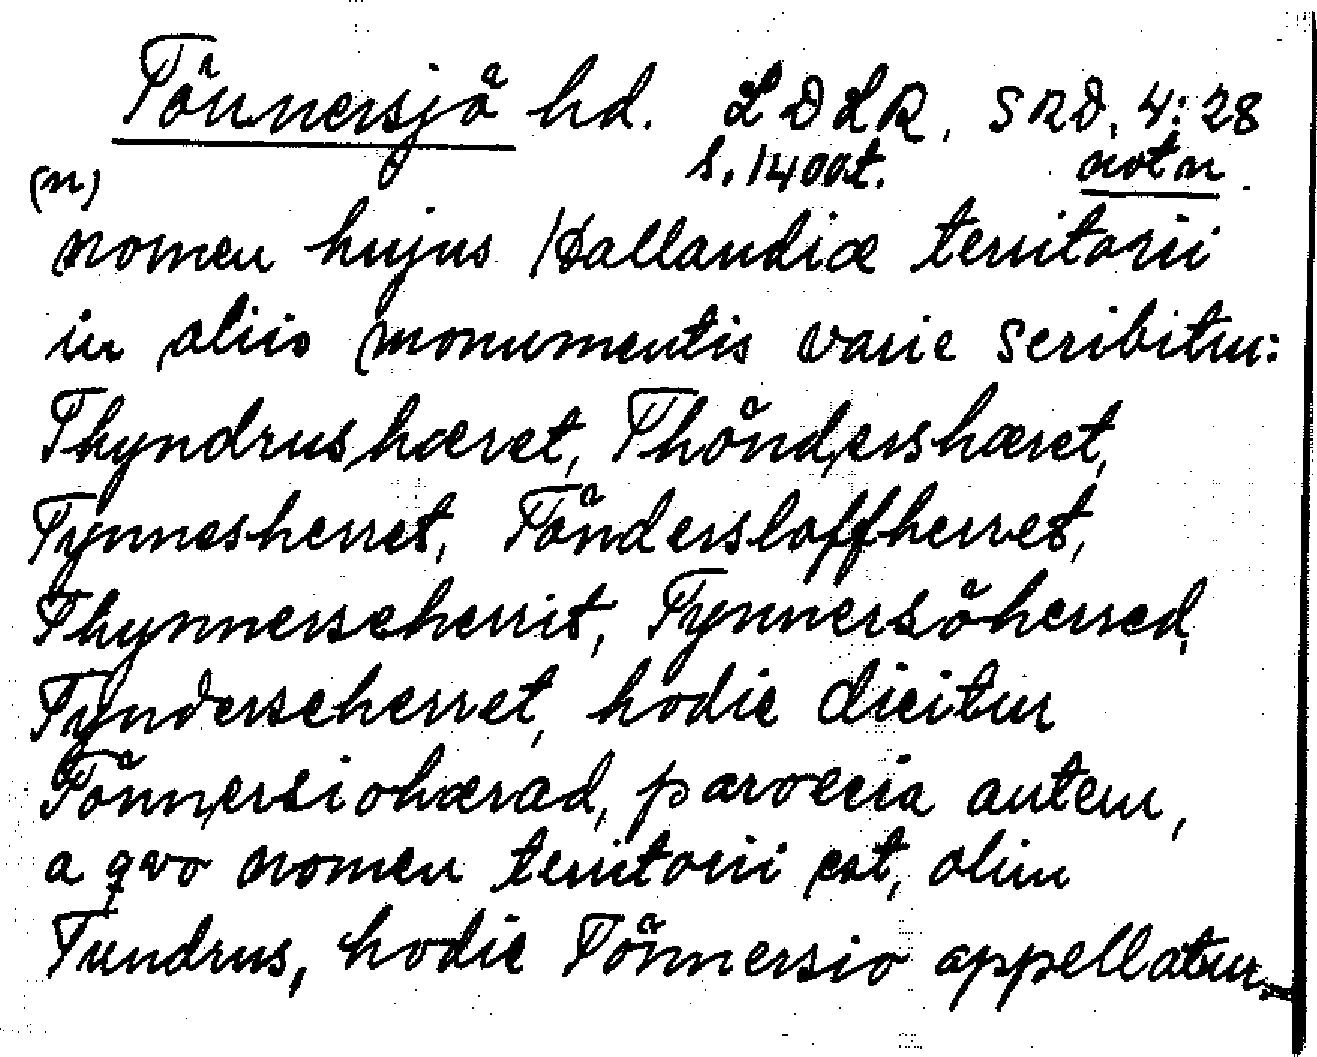 Tönnersjö hd. LDLR, SRD. 4:28
s. 1400t. not n
(n)
nomen hujus Hallandiæ territorii
in aliis monumentis varie scribitur:
Thyndrushæret, Thöndershæret,
Tynnesherret, Tönderslöffherret,
Thynnerseherrit, Tynnersöherred,
Tynderseherret, hodie dicitur
Tönnersiohærad, paroecia autem,
a qvo nomen territorii est, olim
Tundrus, hodie Tönnersio appellatur